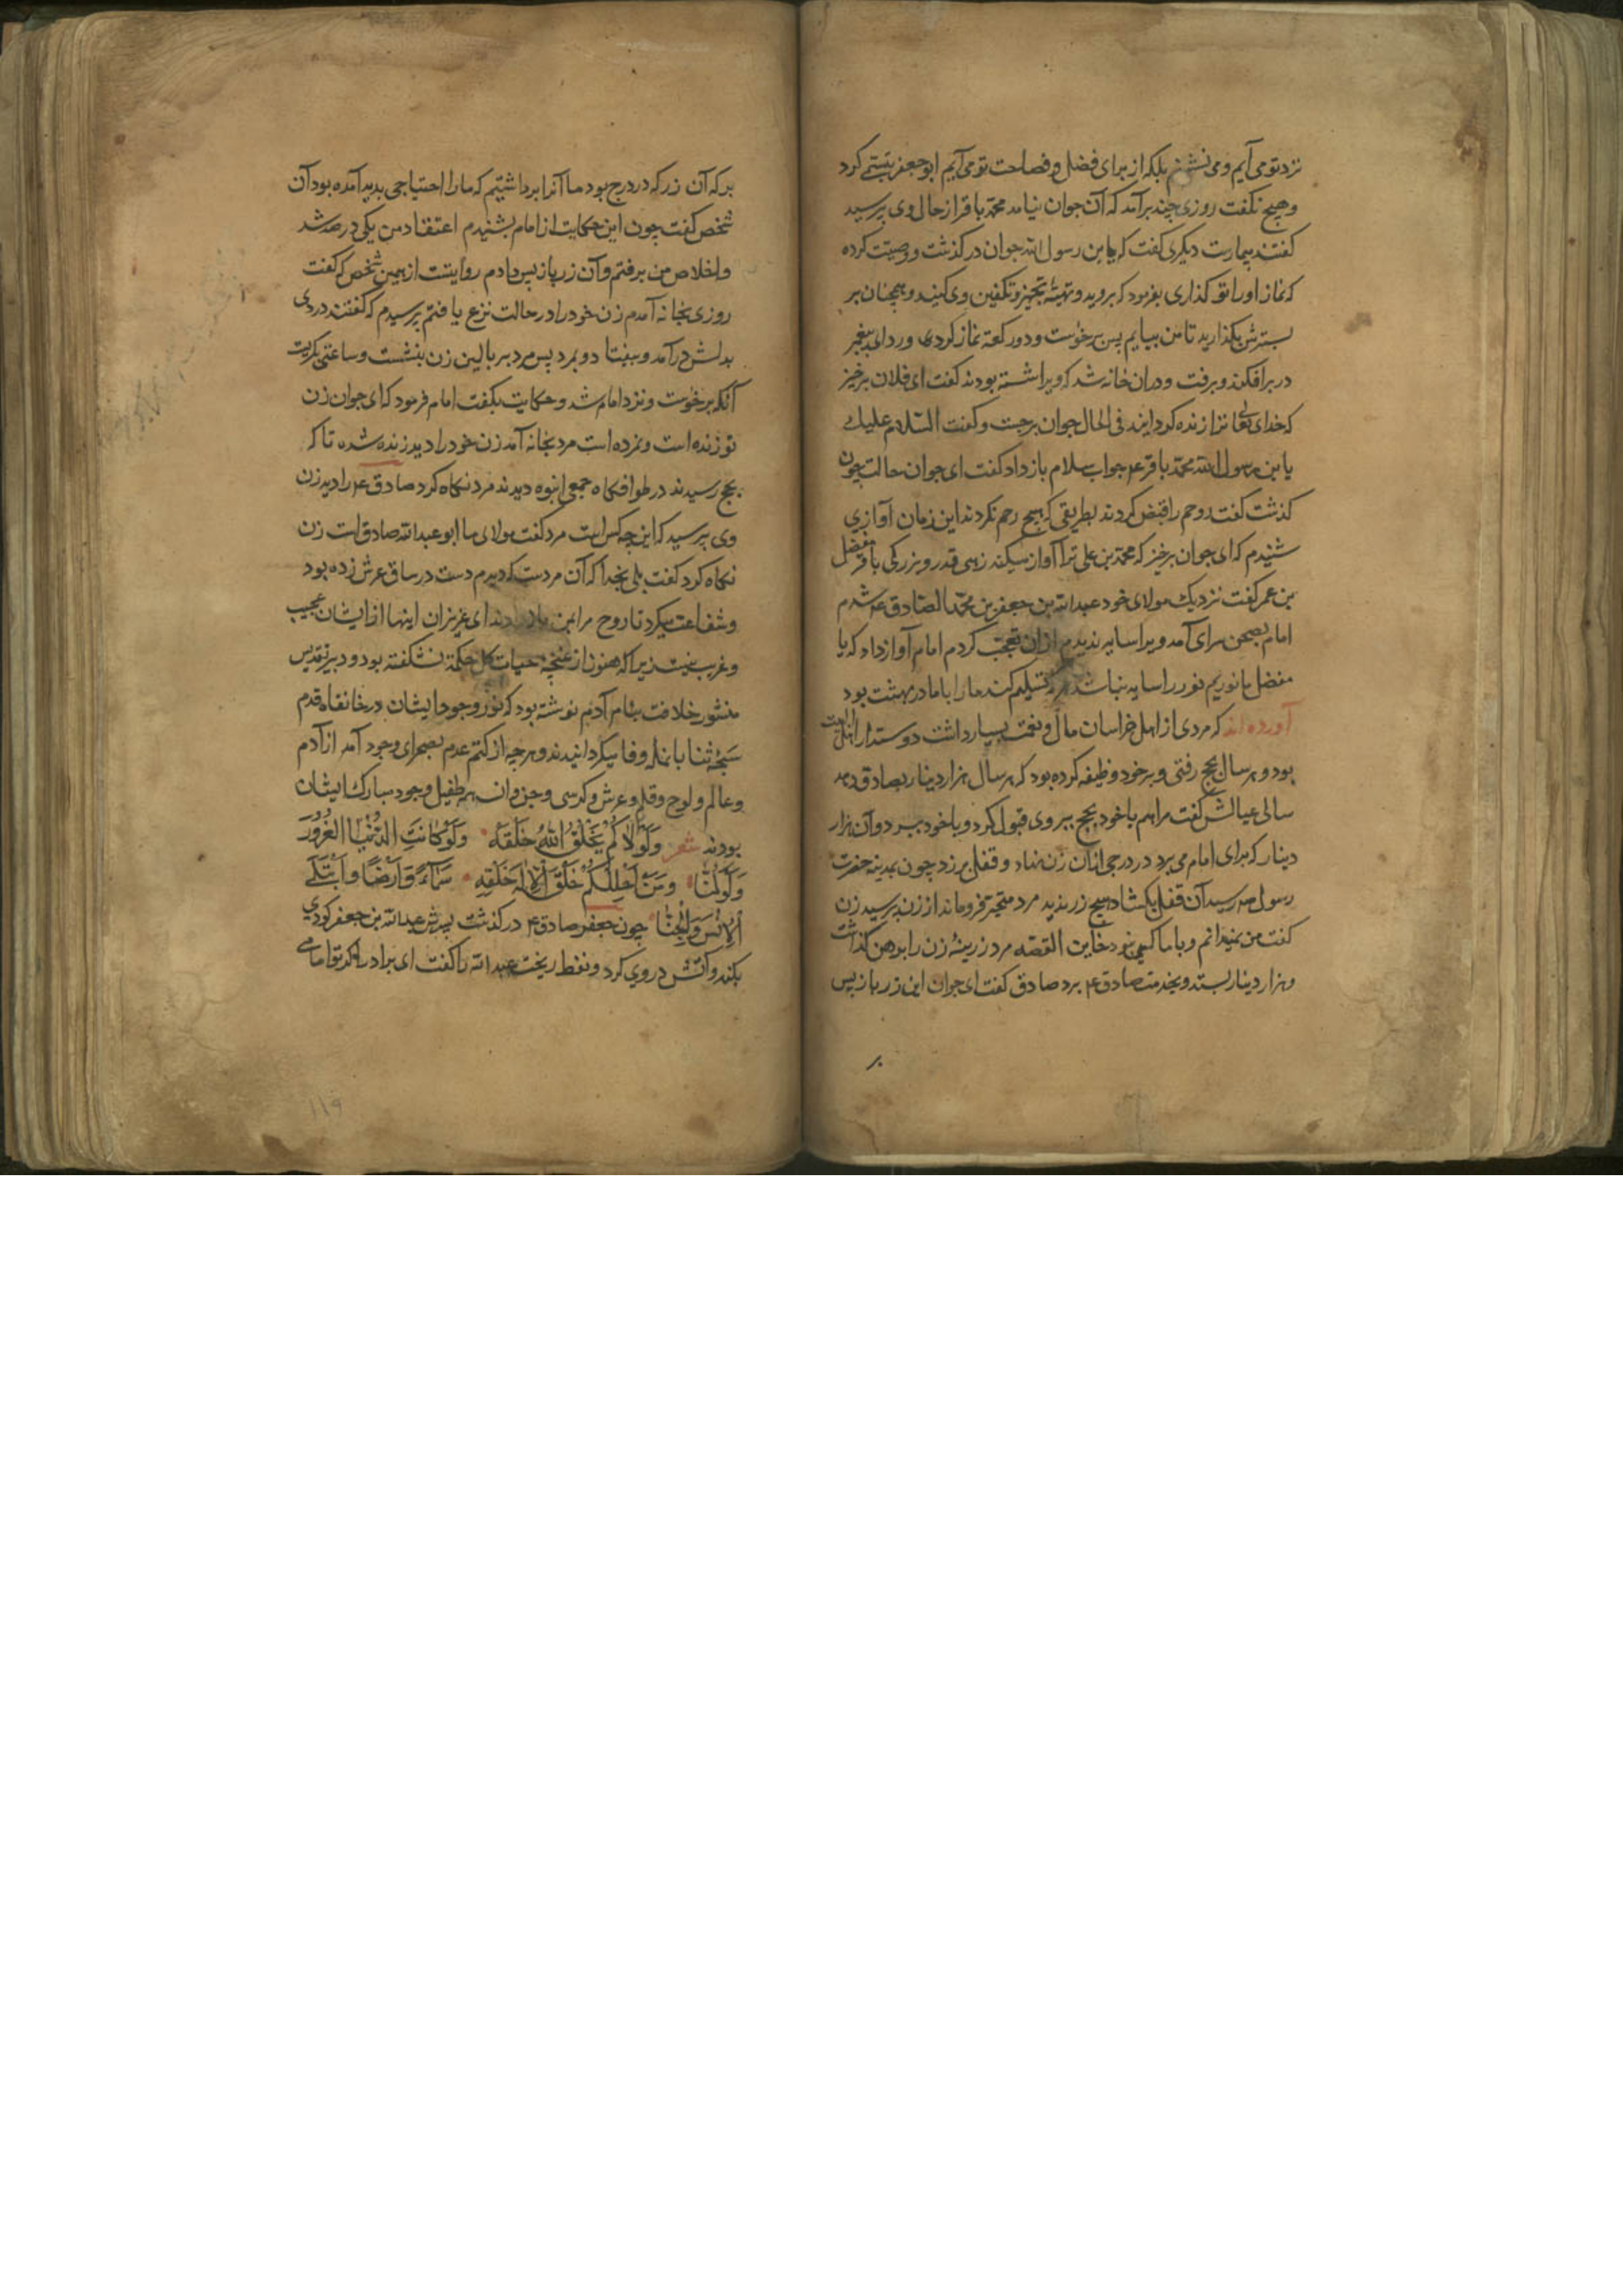 نزد تو می آیم و می نشینم بلکه از برای فضل و فصاحت تو می آیم ابو جعفر تبسّم کرد
و هیچ نکفت روزی چند برآمد که آن جوان نیامد محمّد باقر از حال وی پرسید
کفتند بیمارست دیکری کفت که یابن رسول الله جوان درکذشت و وصیّت کرده
که نماز او را تو کذاری بفرمود که بروید و تهیّه تجهیز و تکفین وی کنید و همچنان بر
بسترش بکذارید تا من بیایم پس برخوست و دو رکعة نماز کردی و ردای پیغمبر
در بر افکند و برفت و دران خانه شد که ویرا شسته بودند کفت ای فلان برخیز
که خدای تعالی ترا زنده کردانید فی الحال جوان برجست و کفت السّلام علیک
یابن رسول الله محمّد باقر ع جواب سلام باز داد کفت ای جوان حالت چون
کذشت کفت روحم را قبض کردند بطریقی که هیچ رحم نکردند این زمان آوازی
شنیدم که ای جوان برخیز که محمّد بن علی ترا آواز میکند زهی قدر و بزرکی باقر مفضل
بن عمر کفت نزدیک مولای خود عبدالله بن جعفر بن محمّد الصّادق ع شدم
امام بصحن سرای آمد ویرا سایه ندیدم ازان تعجّب کردم امام آواز داد که یا
مفضل ما نوریم نور را سایه نباشد هر که تسلیم کند ما را با ما در بهشت بود
آورده اند که مردی از اهل خراسان مال و نعمت بسیار داشت دوستدار اهل البیت
بود و هر سال بحج رفتی و بر خود وظیفه کرده بود که هر سال هزار دینار بصادق دهد
سالی عیالش کفت مرا هم با خود بحج ببر وی قبول کرد و با خود ببرد و آن هزار
دینار که برای امام می برد در درجی ازان زن نهاد و قفل بر زد چون بمدینه حضرت
رسول ص رسید آن قفل بکشاد هیچ زر ندید مرد متحیّر فرو ماند از زن پرسید زن
کفت من نمیدانم و با ما کسی نبود خاین القصّه مرد زرینهٔ زن را برهن کذاشت
و هزار دینار بستد و بخدمت صادق ع برد صادق کفت ای جوان این زر باز پس
بر
بر که آن زر که در درج بود ما آنرا برداشتیم که ما را احتیاجی پدید آمده بود آن
شخص کفت چون این حکایت از امام بشنیدم اعتقاد من یکی در صد شد
و اخلاص من برفتم و آن زر باز پس دادم روایتست از همین شخص که کفت
روزی بخانه آمدم زن خود را در حالت نزع یافتم پرسیدم که کفتند دردی
بدلش درآمد و بیفتاد و بمرد پس مرد ببر بالین زن بنشست و ساعتی بکریست
آنکه برخوست و نزد امام شد و حکایت بکفت امام فرمود که ای جوان زن
تو زنده است و نمرده است مرد بخانه آمد زن خود را دید زنده شده تا که
بحج رسیدند در طوافکاه جمعی انبوه دیدند مرد نکاه کرد صادق ع را دید زن
وی پرسید که این چه کس است مرد کفت مولای ما ابو عبدالله صادق است زن
نکاه کرد کفت بلی بخدا که آن مردست که دیدم دست در ساق عرش زده بود
و شفاعت میکرد تا روح مرا بمن باز دادند ای عزیزان اینها از ایشان عجیب
و غریب نیست زیرا که هنوز از غنچه حیات کل حکمة نشکفته بود و دبیر تقدیس
منشور خلافت بنام آدم نوشته بود که نور وجود ایشان در خانقاه قدم
سبحهٔ ثنا بانامل وفا میکردانیدند و هرچه از کتم عدم بصحرای وجود آمد از آدم
و عالم و لوح و قلم و عرش و کرسی و جن و انس همه طفیل وجود مبارک ایشان
بودند شعر وَلَوْلَاکُمُ لَمْ یَخْلُقِ اللهُ خَلْقَهُ وَلَوْ کَانَتِ الدُّنْیَا الغُرُورَ
وَلَوْلَنَا وَمِنْ اَجْلِکُمْ خَلَقَ الْاِلٰهُ خَلْقِهِ سَمَآءً وَ اَرْضًا وَ اَبْتَلَی
الْاِنْسَ وَالْجِنَّا چون جعفر صادق ع درکذشت پسرش عبدالله بن جعفر کودی
بکند و آتش در وی کرد و نفط ریخت عبدالله را کفت ای برادر اکر تو امامی
۱۱۹